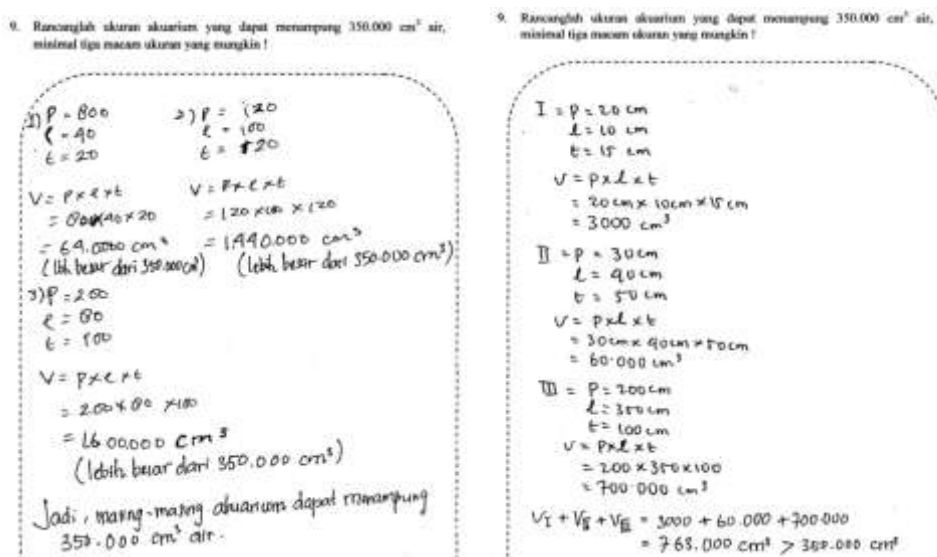 9. Rancanglah ukuran akuarium yang dapat menampung 350.000 cm³ air,
minimal tiga macam ukuran yang mungkin !
1) P = 800
l = 40
t = 20
V = P x l x t
= 800 x 40 x 20
= 64.0000 cm³
(lbh besar dari 350.000 cm³)
2) P = 120
l = 100
t = 120
V = P x l x t
= 120 x 100 x 120
= 1.440.000 cm³
(lebih besar dari 350.000 cm³)
3) P = 200
l = 80
t = 100
V = P x l x t
= 200 x 80 x 100
= 1.600.000 cm³
(lebih besar dari 350.000 cm³)
Jadi, masing-masing akuarium dapat menampung
350.000 cm³ air.
9. Rancanglah ukuran akuarium yang dapat menampung 350.000 cm³ air,
minimal tiga macam ukuran yang mungkin !
I = P = 20 cm
l = 10 cm
t = 15 cm
V = P x l x t
= 20 cm x 10 cm x 15 cm
= 3000 cm³
II = P = 30 cm
l = 40 cm
t = 50 cm
V = P x l x t
= 30 cm x 40 cm x 50 cm
= 60.000 cm³
III = P = 200 cm
l = 350 cm
t = 100 cm
V = P x l x t
= 200 x 350 x 100
= 700.000 cm³
V I + V II + V III = 3000 + 60.000 + 700.000
= 763.000 cm³ > 350.000 cm³